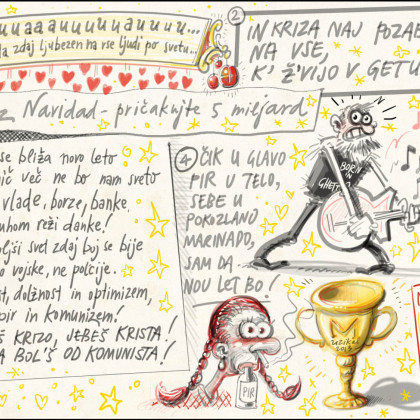 uuaaauuuuauuuu...
zdaj ljubezen na vse ljudi po svetu...
2
IN KRIZA NAJ POZAB
NA VSE,
K' ŽIVIJO V GETU
Navidad - pričakujte 5 miljard
se bliža novo leto
več ne bo nam sveto
vlade, borze, banke,
reži danke!
svet zdaj boj se bije
vojske, ne policije.
dolžnost in optimizem,
in komunizem!
KRIZO, JEBEŠ KRISTA!
BOL'Š OD KOMUNISTA!
4 ČIK U GLAVO
PIR U TELO,
SEBE U
POKOZLANO
MARINADO,
SAM DA
NOU LET BO!
BORN
IN
GHETT
PIR
M